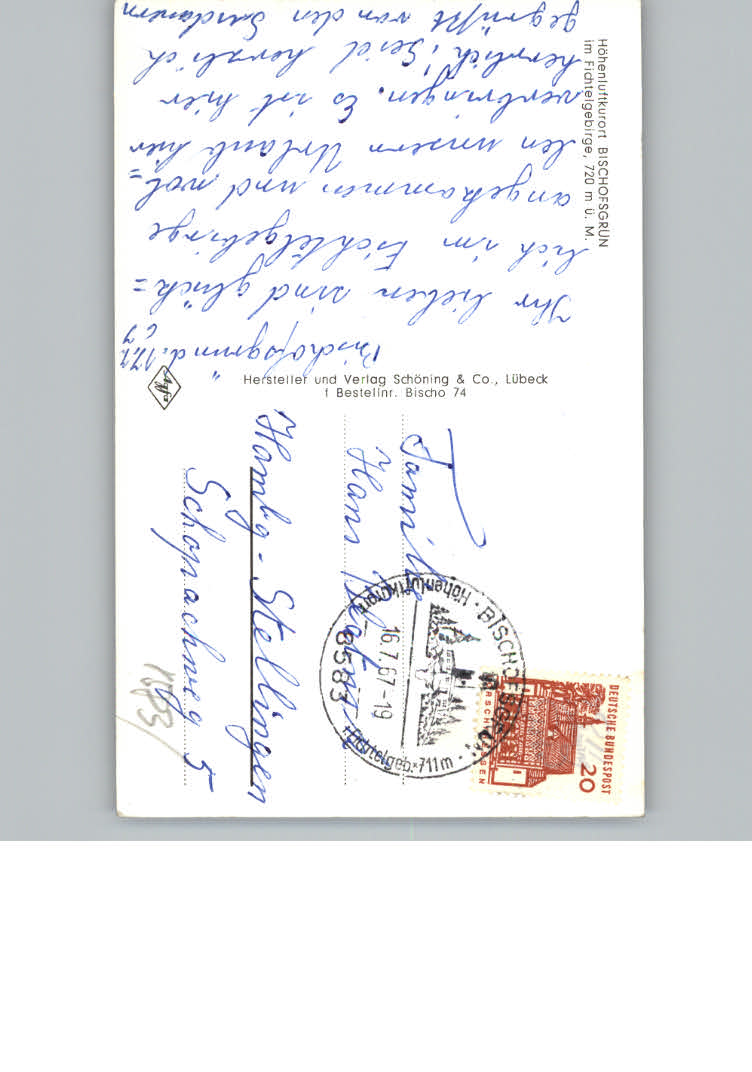 Höhenluftkurort BISCHOFSGRÜN
im Fichtelgebirge, 720 m ü. M.
Bischofsgrün d. 17.7.
67
Ihr Lieben sind glück=
lich im Fichtelgebirge
angekommen und wol=
len unsern Urlaub hier
verbringen. Es ist hier
herrlich! Seid herzlich
gegrüßt von den
Agfa
Hersteller und Verlag Schöning & Co., Lübeck
Bestellnr. Bischo 74
Familie
Hans
Hambg - Stellingen
5
Höhenluftkurort · BISCHOFSGRÜN ·
16.7.67-19
8583
Fichtelgeb. 711m
DEUTSCHE BUNDESPOST
20